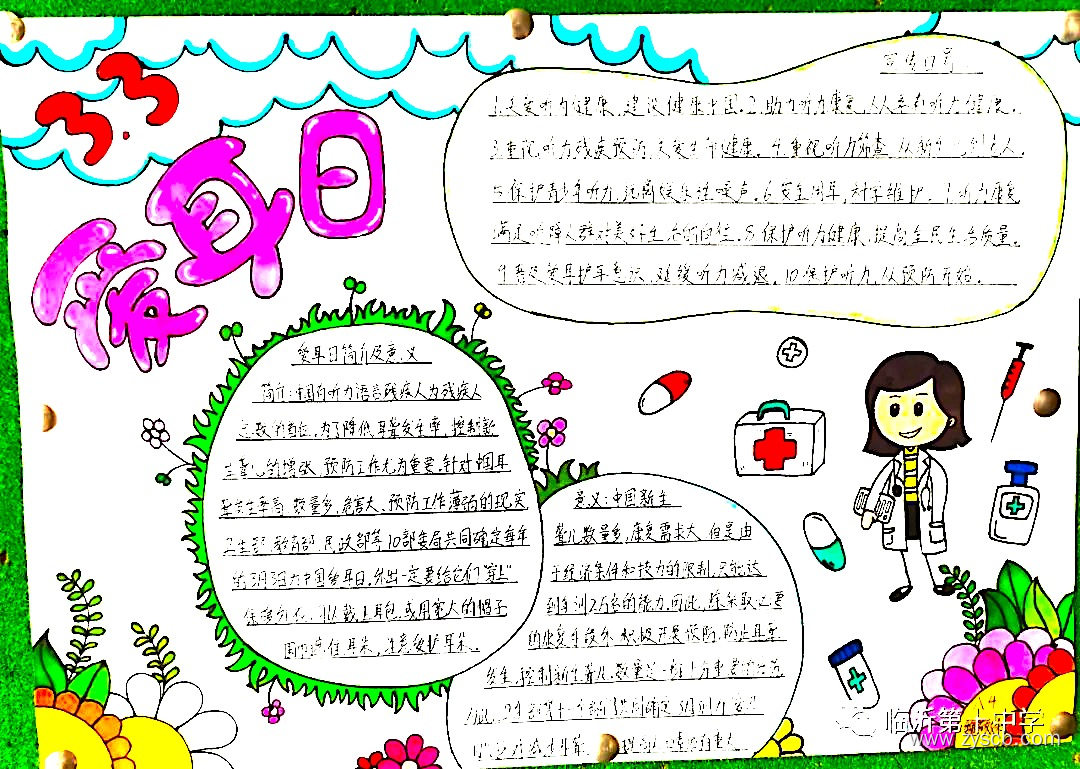 3.3
爱耳日
宣传口号
1.关爱听力健康,建设健康中国.2.助力听力康复,人人享有听力健康.
3.重视听力残疾预防,关爱生命健康. 4.重视听力筛查,从新生儿到老人.
5.保护青少年听力,远离娱乐性噪声.6.安全用耳,科学维护. 7.听力康复
满足听障人群对美好生活的向往.8.保护听力健康,提高全民生活质量.
9.普及爱耳护耳意识,延缓听力减退. 10.保护听力,从预防开始.
爱耳日简介及意义
简介:中国有听力语言残疾人为残疾人
之最的首位,为了降低耳聋发生率,控制新
生聋儿的增张,预防工作尤为重要.针对中国耳
聋发生率高,数量多,危害大、预防工作薄弱的现实,
卫生部、教育部、民政部等10部委局共同确定每年
的3月3日为中国爱耳日,外出一定要给它们"穿上"
保暖 可以戴上耳包,或用宽大的帽子
围巾 住耳朵,注意爱护耳朵.
意义:中国新生
聋儿数量多,康复需求大,但是由
于经济条件和技力的限制,只能达
到年训 的能力.因此,除采取必要
的康复手段外,积极开展预防,防止耳聋
发生,控制新生聋儿数量 十分重要
临沂第十中学
www.zyscb.com